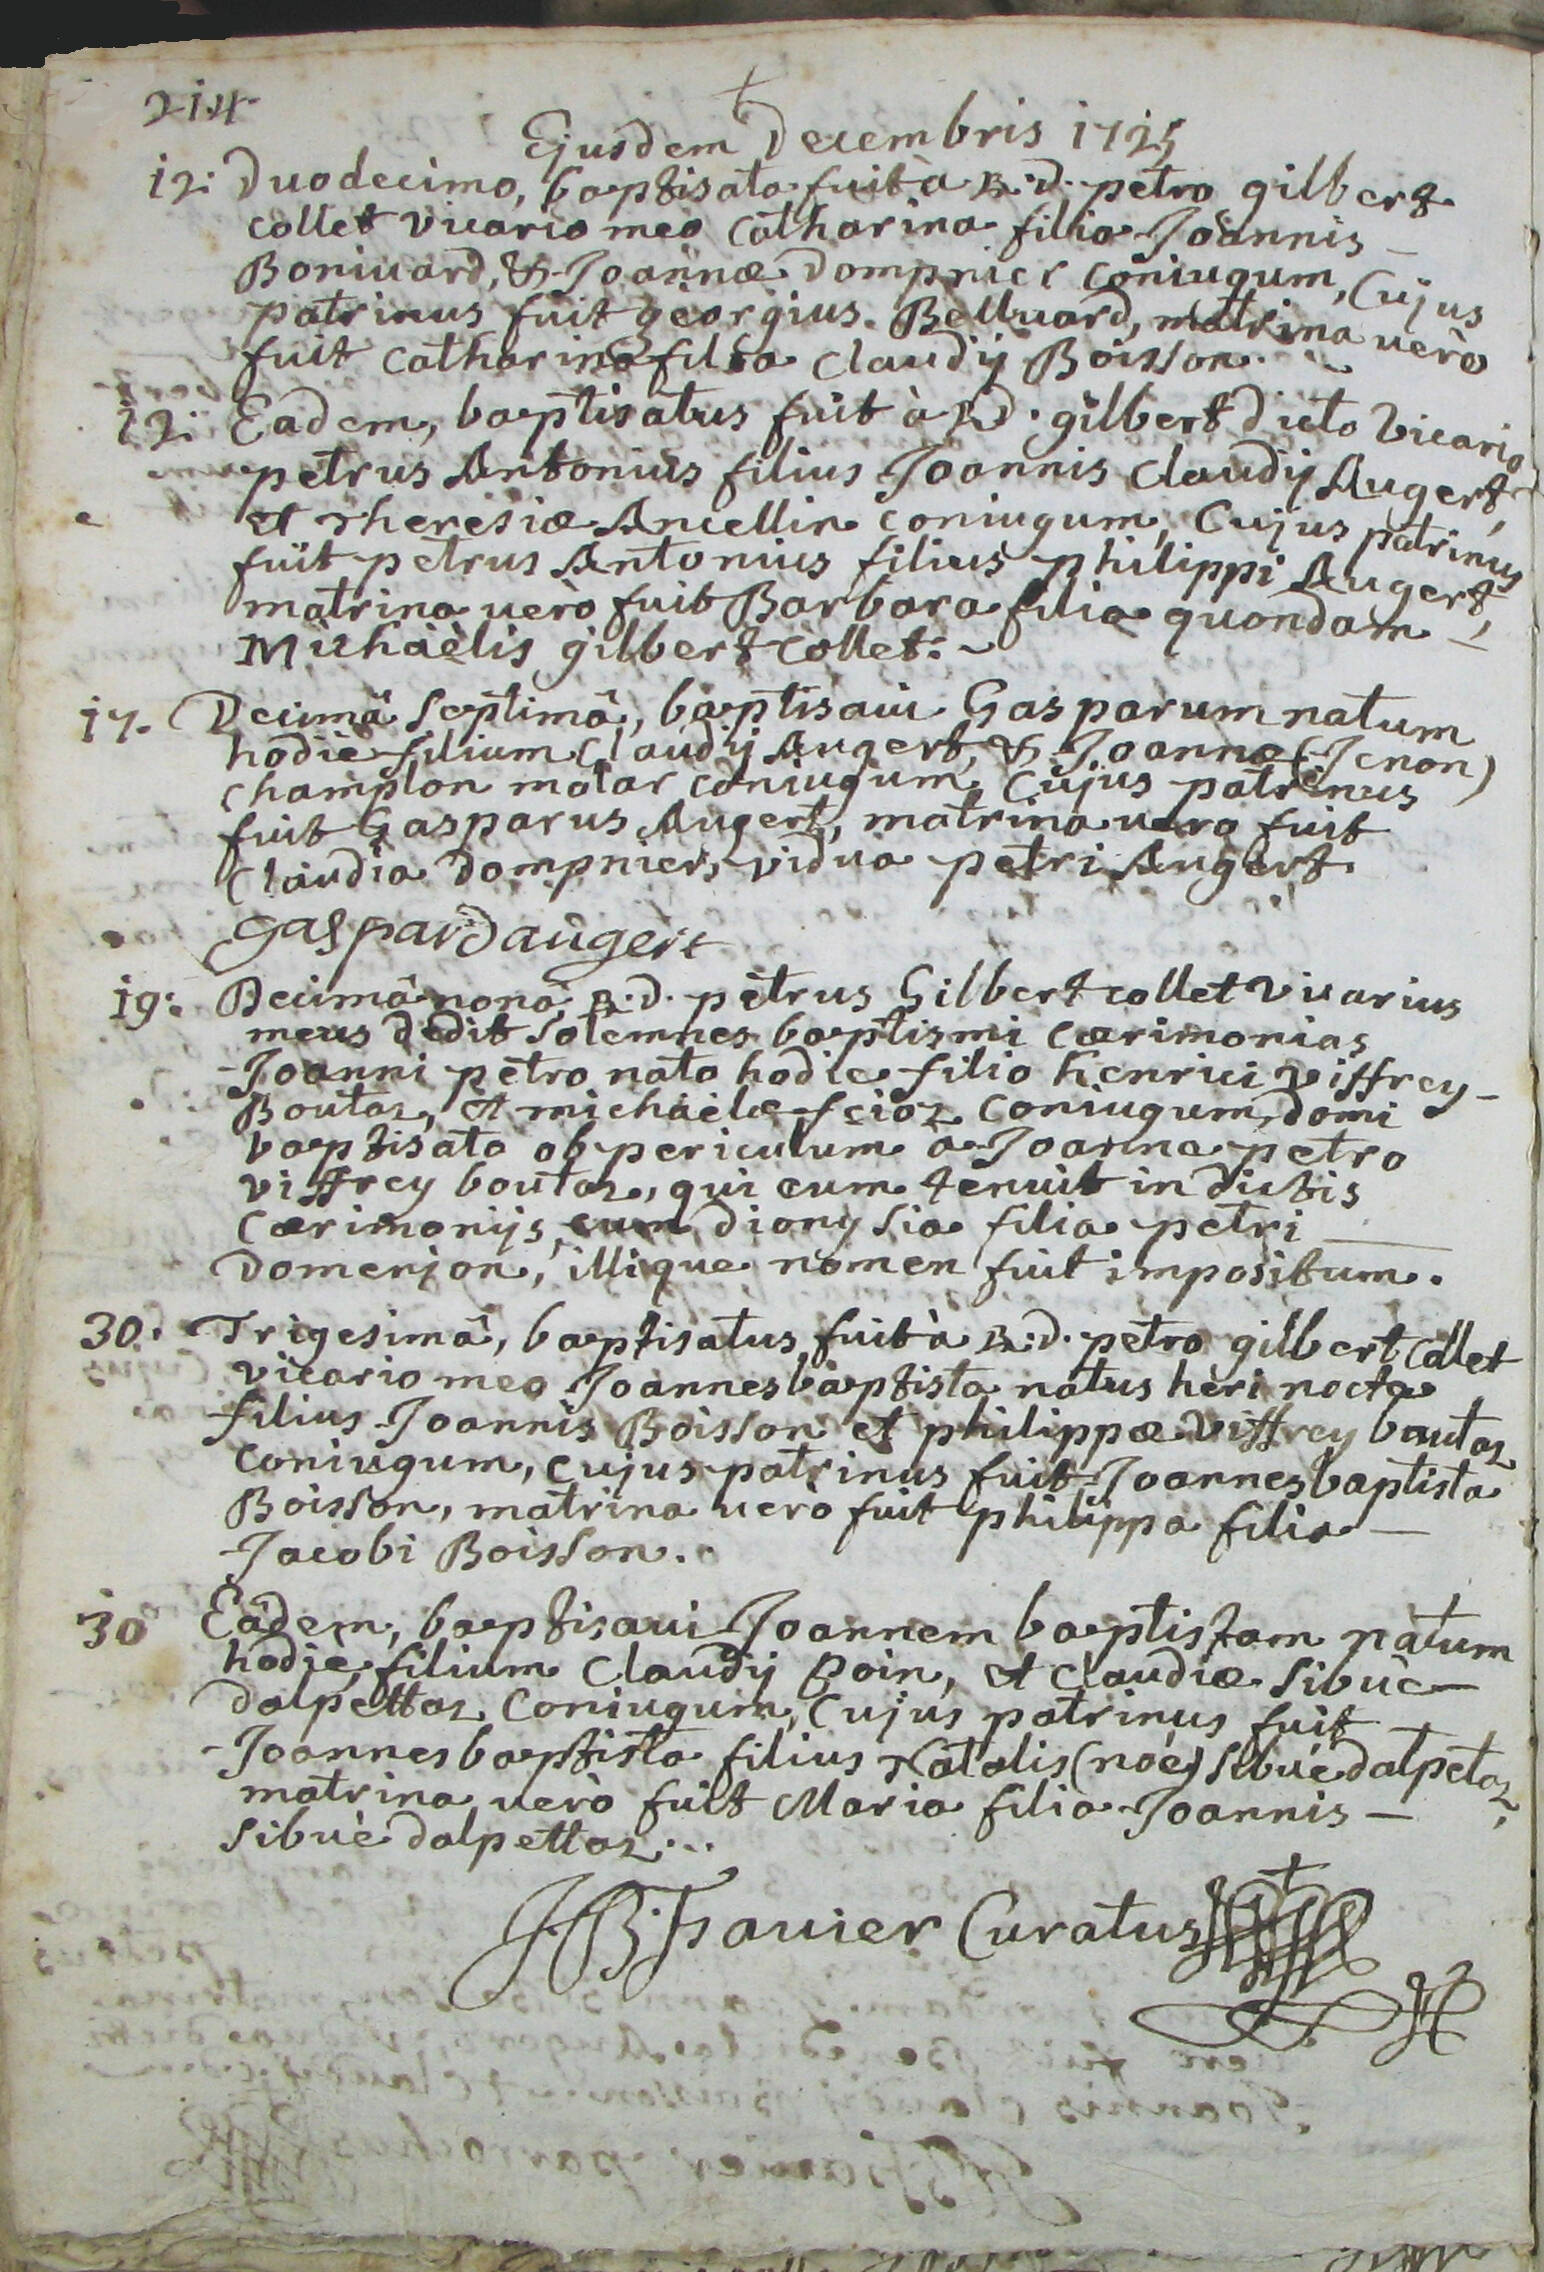 214
Ejusdem Decembris 1725
12: Duodecimo, baptisata fuit à R: D. petro gilbert
collet vicario meo Catharina filia Joannis
Boniuard, & Joannæ Dompnier coniugum, Cujus
patrinus fuit georgius Belluard, matrina uerò
fuit catharina filia Claudij Boisson.
12: Eadem, baptisatus fuit à R D. gilbert dicto vicario
petrus Antonius filius Joannis Claudij Augert,
et Theresiæ Ancellin coniugum, Cujus patrinus
fuit petrus Antonius filius philippi Augert,
matrina uerò fuit Barbara filia quondam
Michaëlis gilbert collet:
17. Decimâ septimâ, baptisaui Gasparum natum
hodie filium Claudij Augert, & Joannæ (Jenon)
champlon matar coniugum, Cujus patrinus
fuit Gasparus Augert, matrina uero fuit
Claudia Dompnier, vidua petri Augert.
Gaspard augert
19: Decimâ nonâ, R: D. petrus Gilbert collet vicarius
meus dedit solemnes baptismi cærimonias
Joanni petro nato hodie filio henrici viffrey
Boutaz, et michaëlæ scioz coniugum, domi
baptisato ob periculum a Joanne petro
viffrey boutaz, qui eum tenuit in dictis
cærimonijs, cum dionysia filia petri
Domenjon, illique nomen fuit impositum.
30. Trigesimâ, baptisatus fuit à R: D. petro gilbert Collet
vicario meo Joannes baptista natus heri nocte
filius Joannis Boisson et philippæ viffrey boutaz
coniugum, cujus patrinus fuit Joannes baptista
Boisson, matrina uerò fuit philippa filia
Jacobi Boisson.
30 Eâdem, baptisaui Joannem baptistam natum
hodie, filium Claudij Boin, et Claudiæ Sibuè
dalpettaz Coniugum, Cujus patrinus fuit
Joannes baptista filius Natalis (noé) Sibuè dalpetaz,
matrina uerò fuit Maria filia Joannis
Sibuè dalpettaz...
Curatus